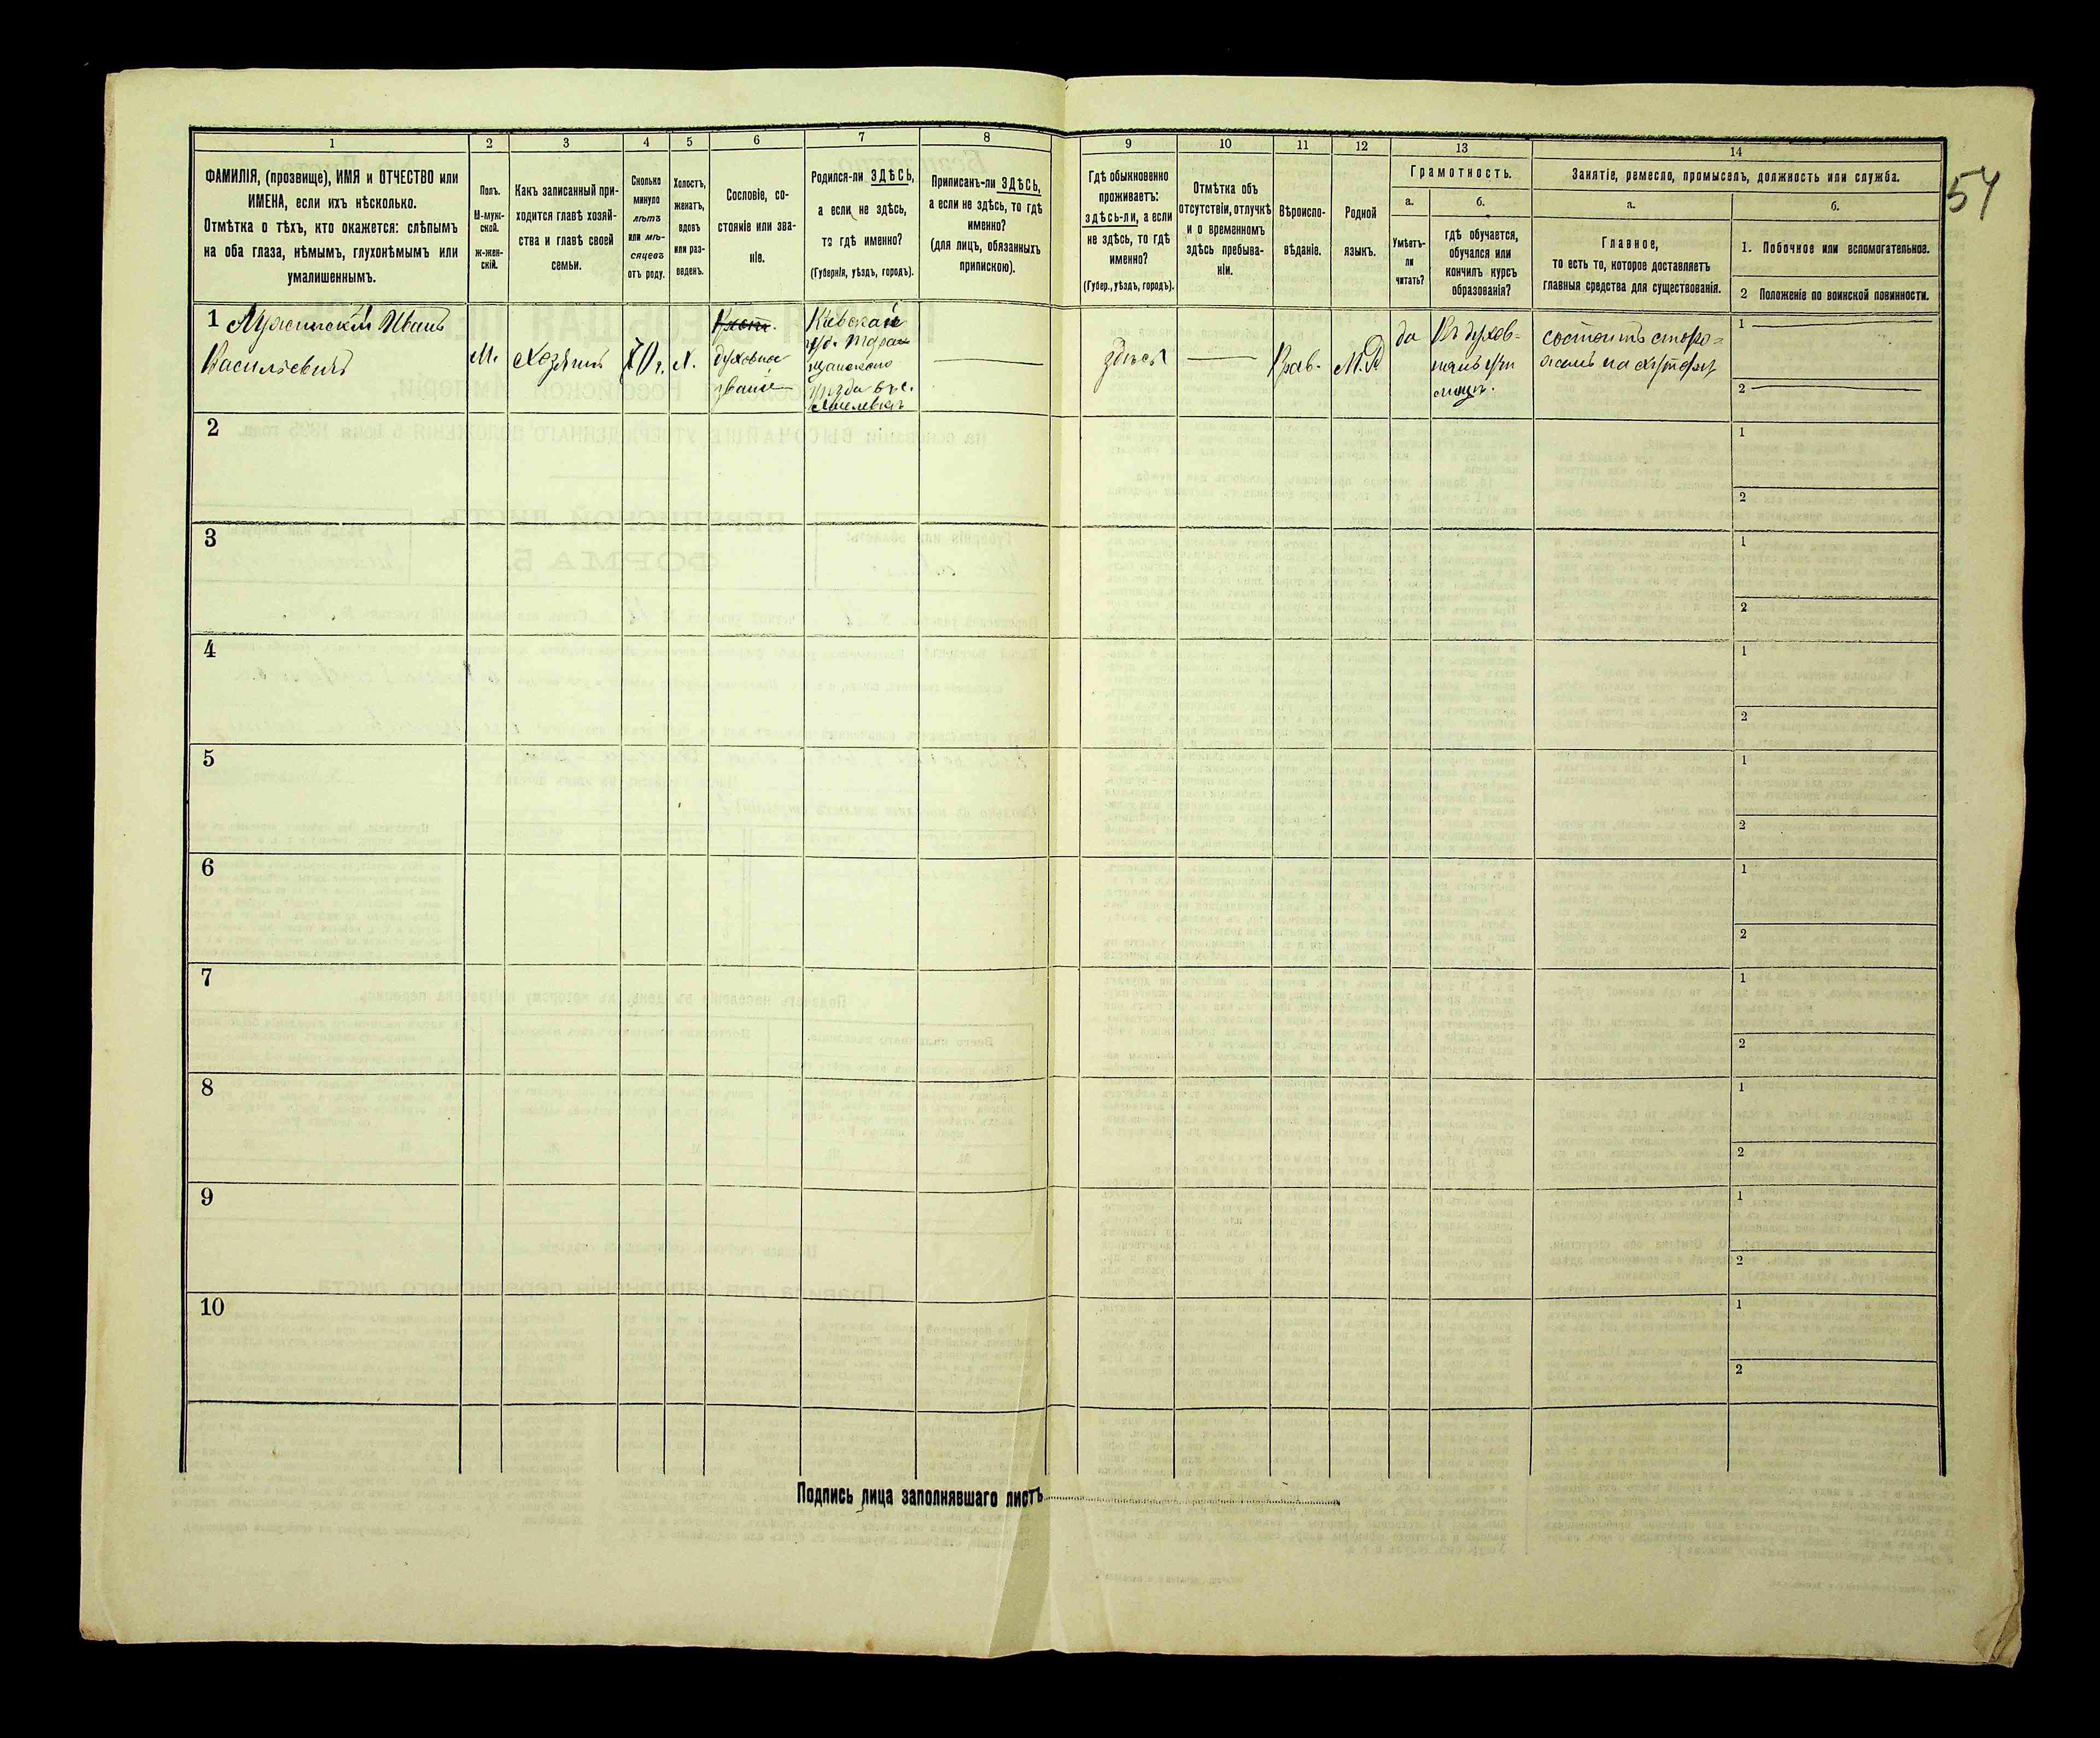 1
2
3
4
5
6
7
8
9
10
11
12
13
14
ФАМИЛІЯ, (прозвище), ИМЯ и ОТЧЕСТВО или
ИМЕНА, если ихъ нѣсколько.
Отмѣтка о тѣхъ, кто окажется: слѣпымъ
на оба глаза, нѣмымъ, глухонѣмымъ или
умалишеннымъ.
Полъ.
М-муж-
ской.
Ж-жен-
скій.
Какъ записанный при-
ходится главѣ хозяй-
ства и главѣ своей
семьи.
Сколько
минуло
лѣтъ
или мѣ-
сяцевъ
отъ роду.
Холостъ,
женатъ,
вдовъ
или раз-
веденъ.
Сословіе, со-
стояніе или зва-
ніе.
Родился-ли ЗДѢСЬ,
а если не здѣсь,
то гдѣ именно?
(Губернія, уѣздъ, городъ).
Приписанъ-ли ЗДѢСЬ,
а если не здѣсь, то гдѣ
именно?
(для лицъ, обязанныхъ
припискою).
Гдѣ обыкновенно
проживаетъ:
здѣсь-ли, а если
не здѣсь, то гдѣ
именно?
(Губер., уѣздъ, городъ).
Отмѣтка объ
отсутствіи, отлучкѣ
и о временномъ
здѣсь пребыва-
ніи.
Вѣроиспо-
вѣданіе.
Родной
языкъ.
Грамотность.
а.
Умѣетъ-
ли
читать?
б.
гдѣ обучается,
обучался или
кончилъ курсъ
образованія?
Занятіе, ремесло, промыселъ, должность или служба.
а.
Главное,
то есть то, которое доставляетъ
главныя средства для существованія.
б.
1. Побочное или вспомогательное.
2 Положеніе по воинской повинности.
54
1 Иванъ
Васильевичъ
М.
Хозяинъ
70 г.
Х.
духовное
званіе
Кіевская
губ. Тара
щанскаго
уѣзда в с.
здѣсь
Прав.
М. Р
да
Въ духов=
номъ учи
лищѣ.
состоитъ сторо=
жемъ на хуторѣ
1
2
2
1
2
3
1
2
4
1
2
5
1
2
6
1
2
7
1
2
8
1
2
9
1
2
10
1
2
Подпись лица заполнявшаго листъ